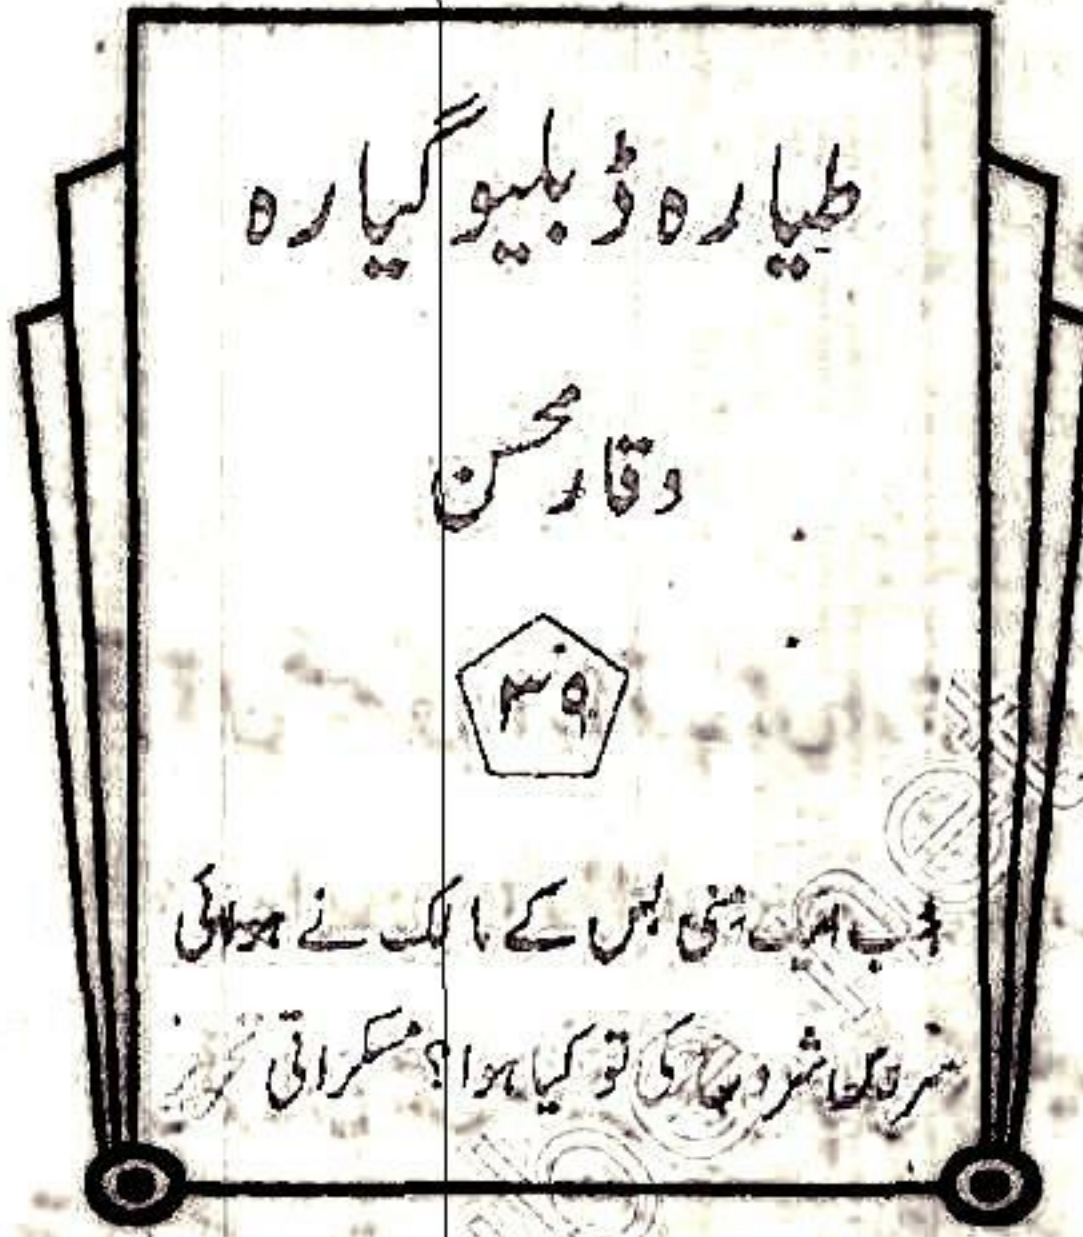 طیارہ ڈبلیو گیارہ
وقار محسن
۳۹
جب ایک منی بس کے مالک نے ہوائی
سروس شروع کی تو کیا ہوا؟ مسکراتی تحریر